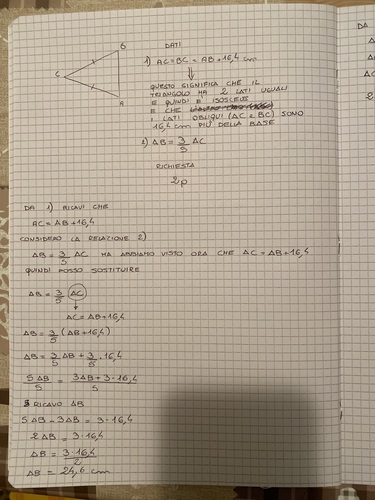 B
C
A
DATI
1) AC = BC = AB + 16,4 cm
QUESTO SIGNIFICA CHE IL
TRIANGOLO HA 2 LATI UGUALI
E QUINDI È ISOSCELE
E CHE
I LATI OBLIQUI (AC e BC) SONO
16,4 cm PIÙ DELLA BASE
2) AB = 3/5 AC
RICHIESTA
2p
DA 1) RICAVI CHE
AC = AB + 16,4
CONSIDERO LA RELAZIONE 2)
AB = 3/5 AC MA ABBIAMO VISTO ORA CHE AC = AB + 16,4
QUINDI POSSO SOSTITUIRE
AB = 3/5 AC
AC = AB + 16,4
AB = 3/5 (AB + 16,4)
AB = 3/5 AB + 3/5 · 16,4
5AB/5 = 3AB + 3 · 16,4/5
RICAVO AB
5AB - 3AB = 3 · 16,4
2AB = 3 · 16,4
AB = 3 · 16,4/2
AB = 24,6 cm
DA